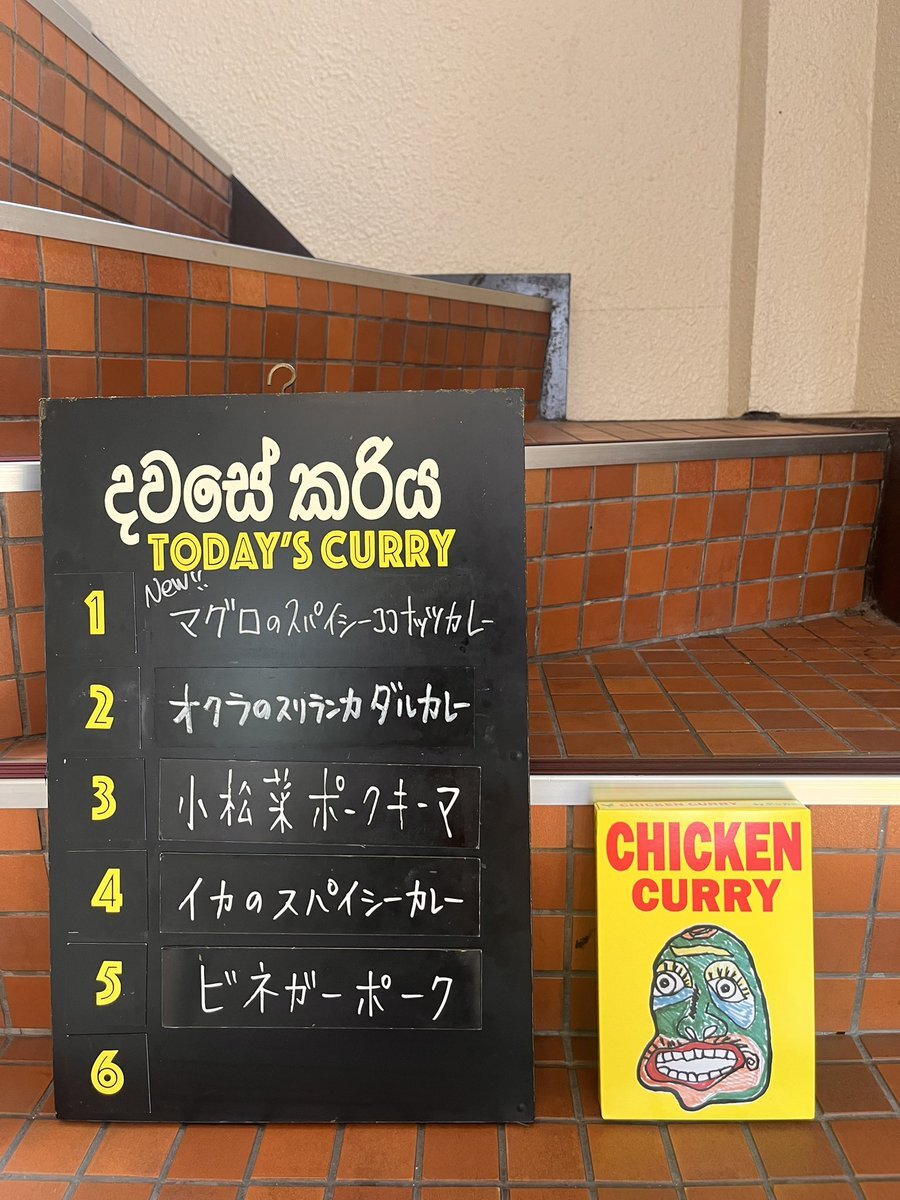 දවසේ කරිය
TODAY'S CURRY
New!!
1 マグロのスパイシーココナッツカレー
2 オクラのスリランカダルカレー
3 小松菜ポークキーマ
4 イカのスパイシーカレー
5 ビネガーポーク
6
CHICKEN CURRY
CHICKEN
CURRY